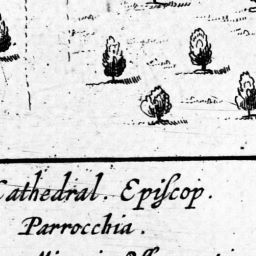 Cathedral. Episcop.
Parrocchia.